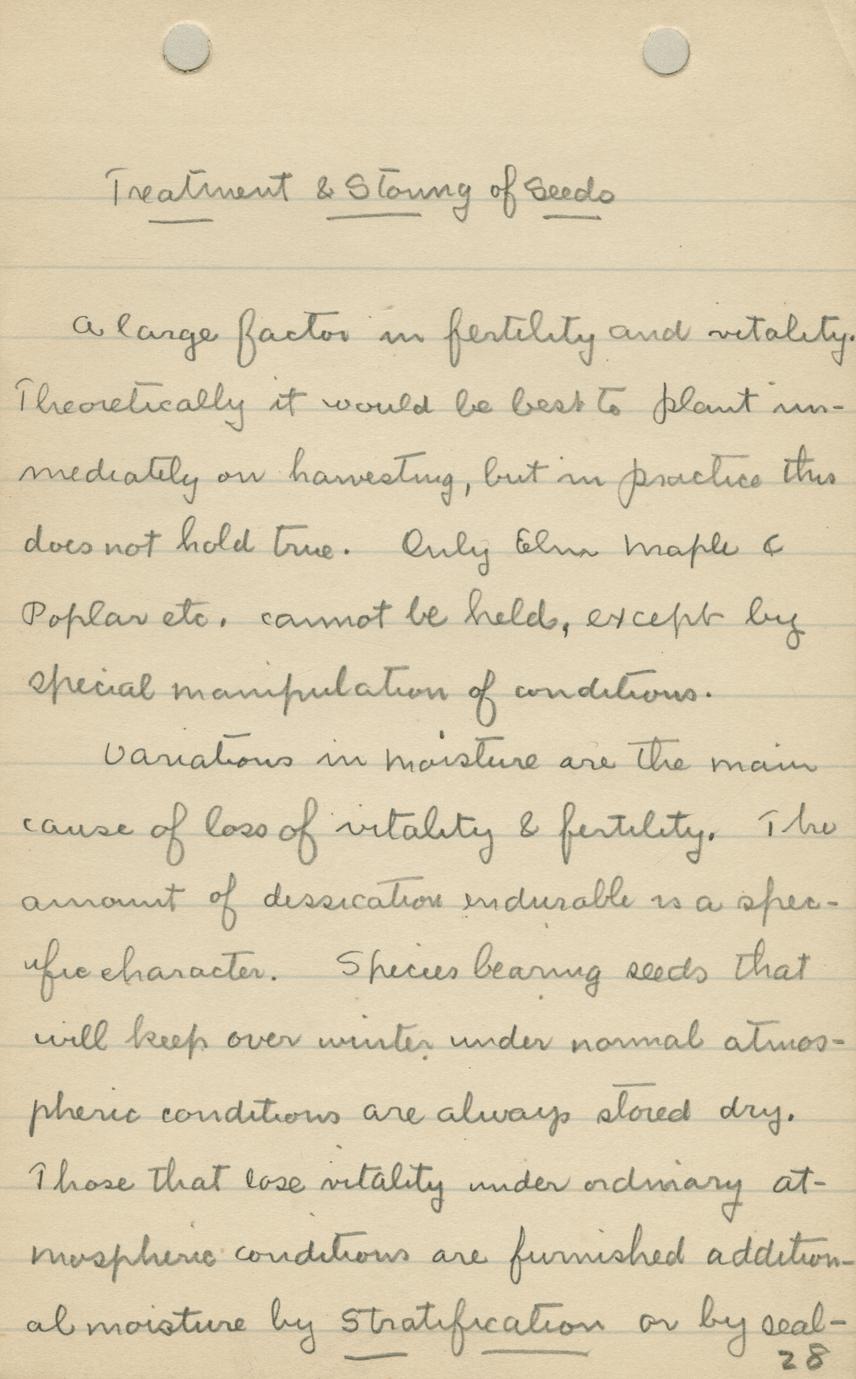 Treatment & Storing of Seeds
A large factor in fertility and vitality.
Theoretically it would be best to plant im-
mediately on harvesting, but in practice this
does not hold true. Only Elm Maple &
Poplar etc. cannot be held, except by
special manipulation of conditions.
Variations in moisture are the main
cause of loss of vitality & fertility. The
amount of dessication endurable is a spec-
ific character. Species bearing seeds that
will keep over winter under normal atmos-
pheric conditions are always stored dry.
Those that lose vitality under ordinary at-
mospheric conditions are furnished addition-
al moisture by Stratification or by seal-
28